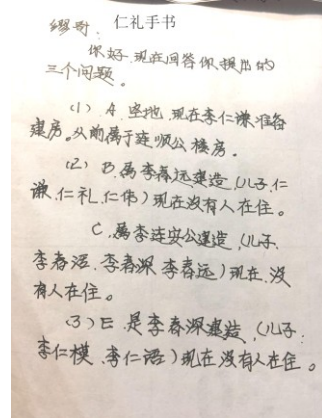 仁礼手书
缪哥:
你好,现在回答你提出的
三个问题。
(1) A 空地,现在李仁谦准备
建房。从前属于连顺公楼房。
(2) B,属李春远建造,(儿子仁
谦、仁礼、仁伟)现在没有人在住。
C,属李连安公建造,(儿子
李春活、李春深、李春远)现在没
有人在住。
(3) E 是李春深建造,(儿子
李仁模、李仁活)现在没有人在住。